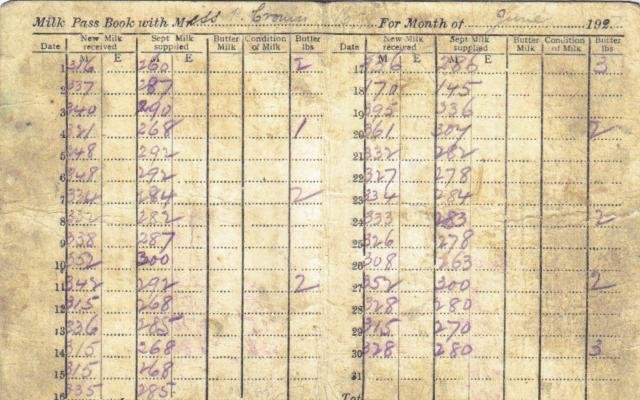 Milk Pass Book with M For Month of June 192
Date New Milk received Sept Milk supplied Butter Milk Condition of Milk Butter lbs Date New Milk received Sept Milk supplied Butter Milk Condition of Milk Butter lbs
M E M E
1 316 260 2 17 336 286 3
2 337 287 18 170 145
3 340 290 19 395 336
4 321 268 1 20 361 307 2
5 348 292 21 332 282
6 348 292 22 327 278
7 334 284 2 23 334 284
8 332 282 24 333 283 2
9 338 287 25 326 278
10 352 300 26 308 263
11 342 292 2 27 352 300 2
12 315 268 28 328 280
13 336 285 29 315 270
14 315 268 30 328 280 3
15 315 268 31
16 335 285